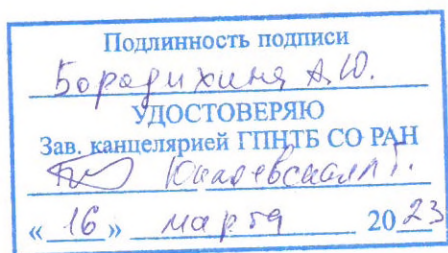 Подлинность подписи
Бородихина А.Ю.
УДОСТОВЕРЯЮ
Зав. канцелярией ГПНТБ СО РАН
«16» марта 2023